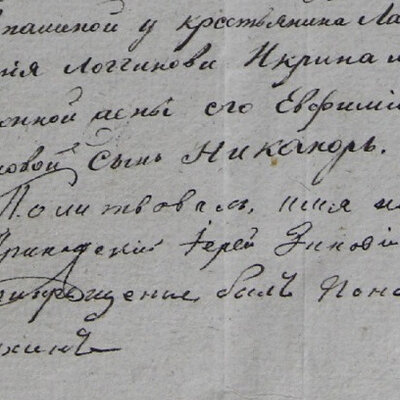 пашиной у крестьянина Ла
ія Логгинова Икрина
онной жены его Евфимі
новой сынъ Никаноръ.
Молитвовалъ, имя на
Приходскій Іерей Зиновій
крещеніе былъ Поно
хинъ